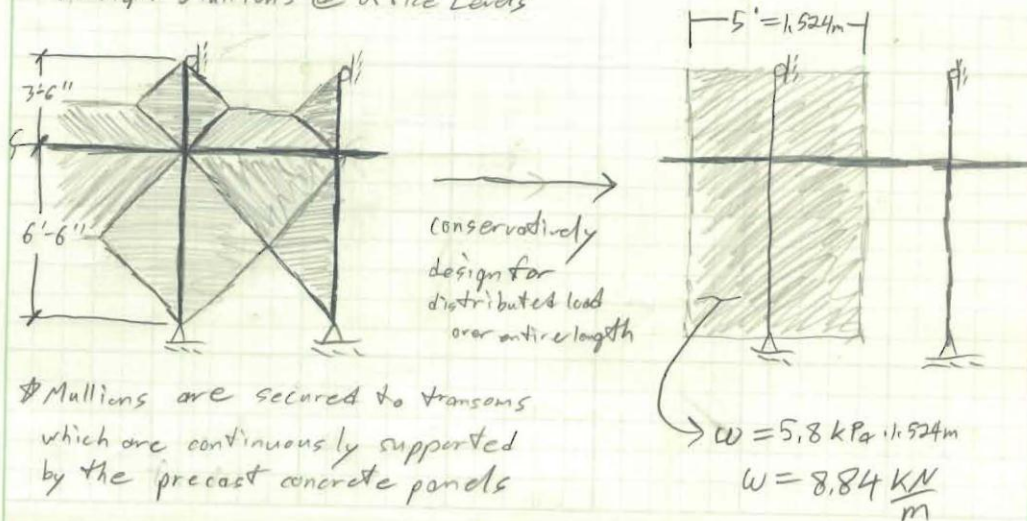 Mullions @ Office Levels
5' = 1.524m
3'-6"
6'-6"
conservatively
design for
distributed load
over entire length
* Mullions are secured to transoms
which are continuously supported
by the precast concrete panels
ω = 5.8 kPa · 1.524m
ω = 8.84 KN/m